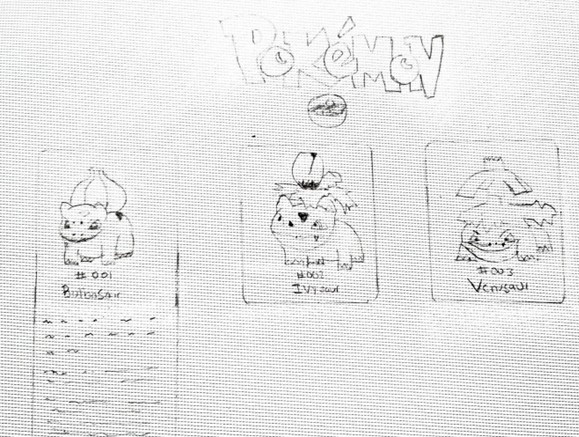 POKéMON
#001
Bulbasaur
#002
IVYsaur
#003
Venusaur